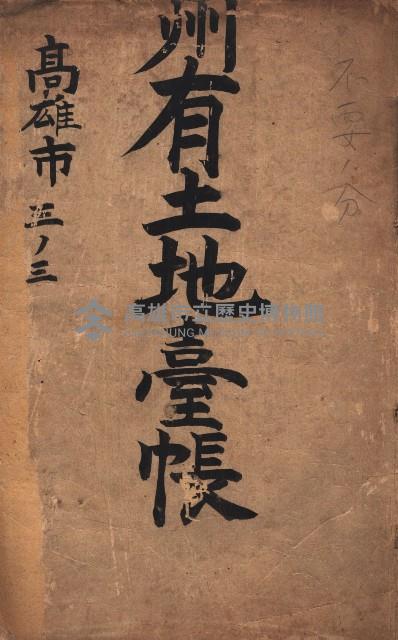 不要ノ分
州有土地臺帳
高雄市 三ノ三
高雄市立歷史博物館
KAOHSIUNG MUSEUM OF HISTORY